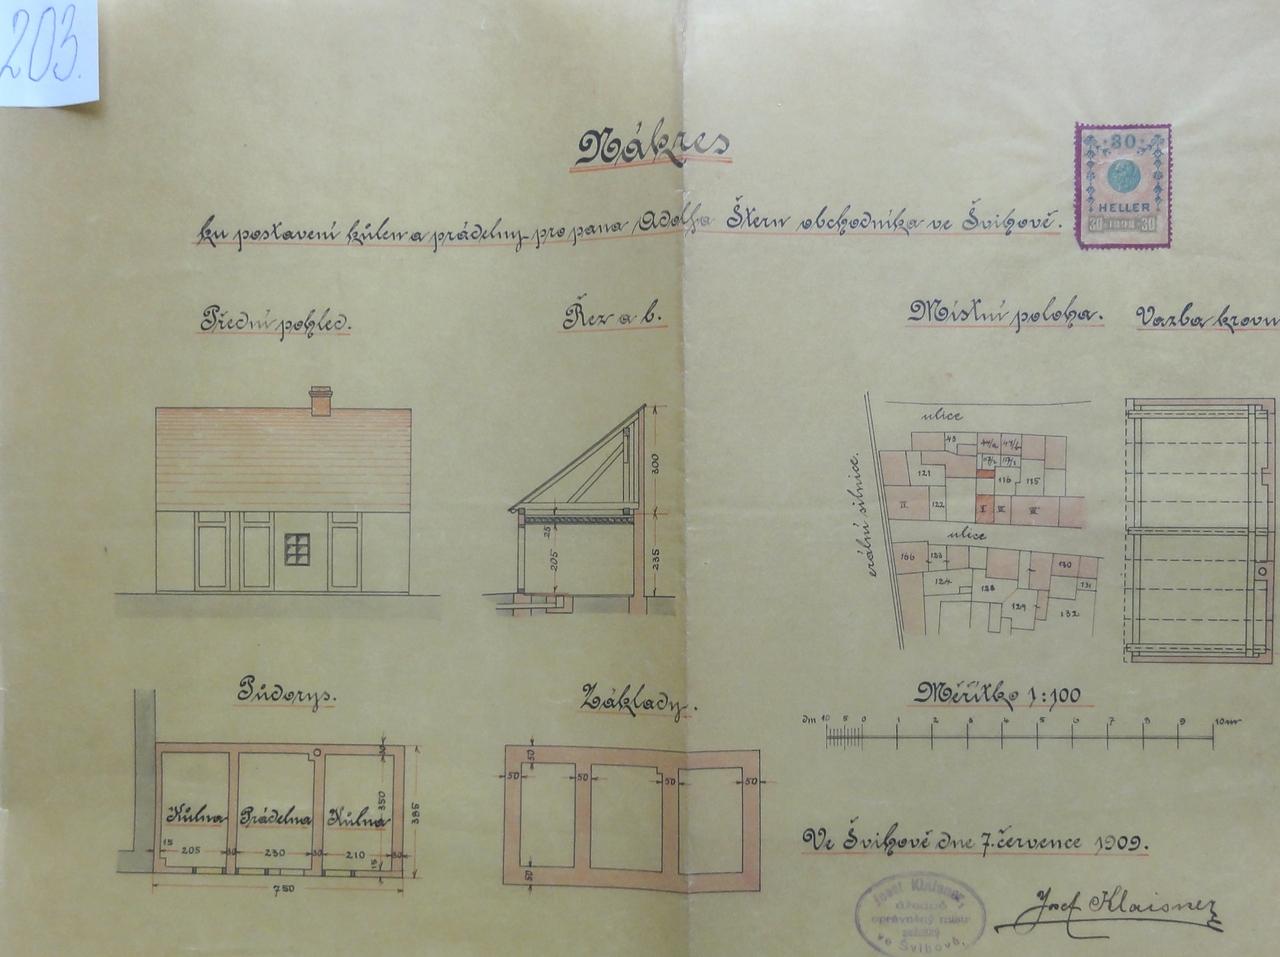 203.
Nákres
ku postavení kůlen a prádelny pro pana Adolfa Štern obchodníka ve Švihově.
30
HELLER
Přední pohled.
Řez a b.
Místní poloha.
Vazba krovu
300
235
25
205
ulice
erální silnice.
43
44/a
44/b
121
116
115
II
122
I
ulice
166
123
130
124
128
131
129
132
Půdorys.
Základy.
Měřítko 1:100
dm 10 5 0 1 2 3 4 5 6 7 8 9 10 m
Kůlna
Prádelna
Kůlna
30
350
385
15
205
30
230
30
210
30
15
750
50
50
50
50
50
50
Ve Švihově dne 7. července 1909.
Josef Klaisner,
úředně
oprávněný mistr
zednický
ve Švihově.
Josef Klaisner